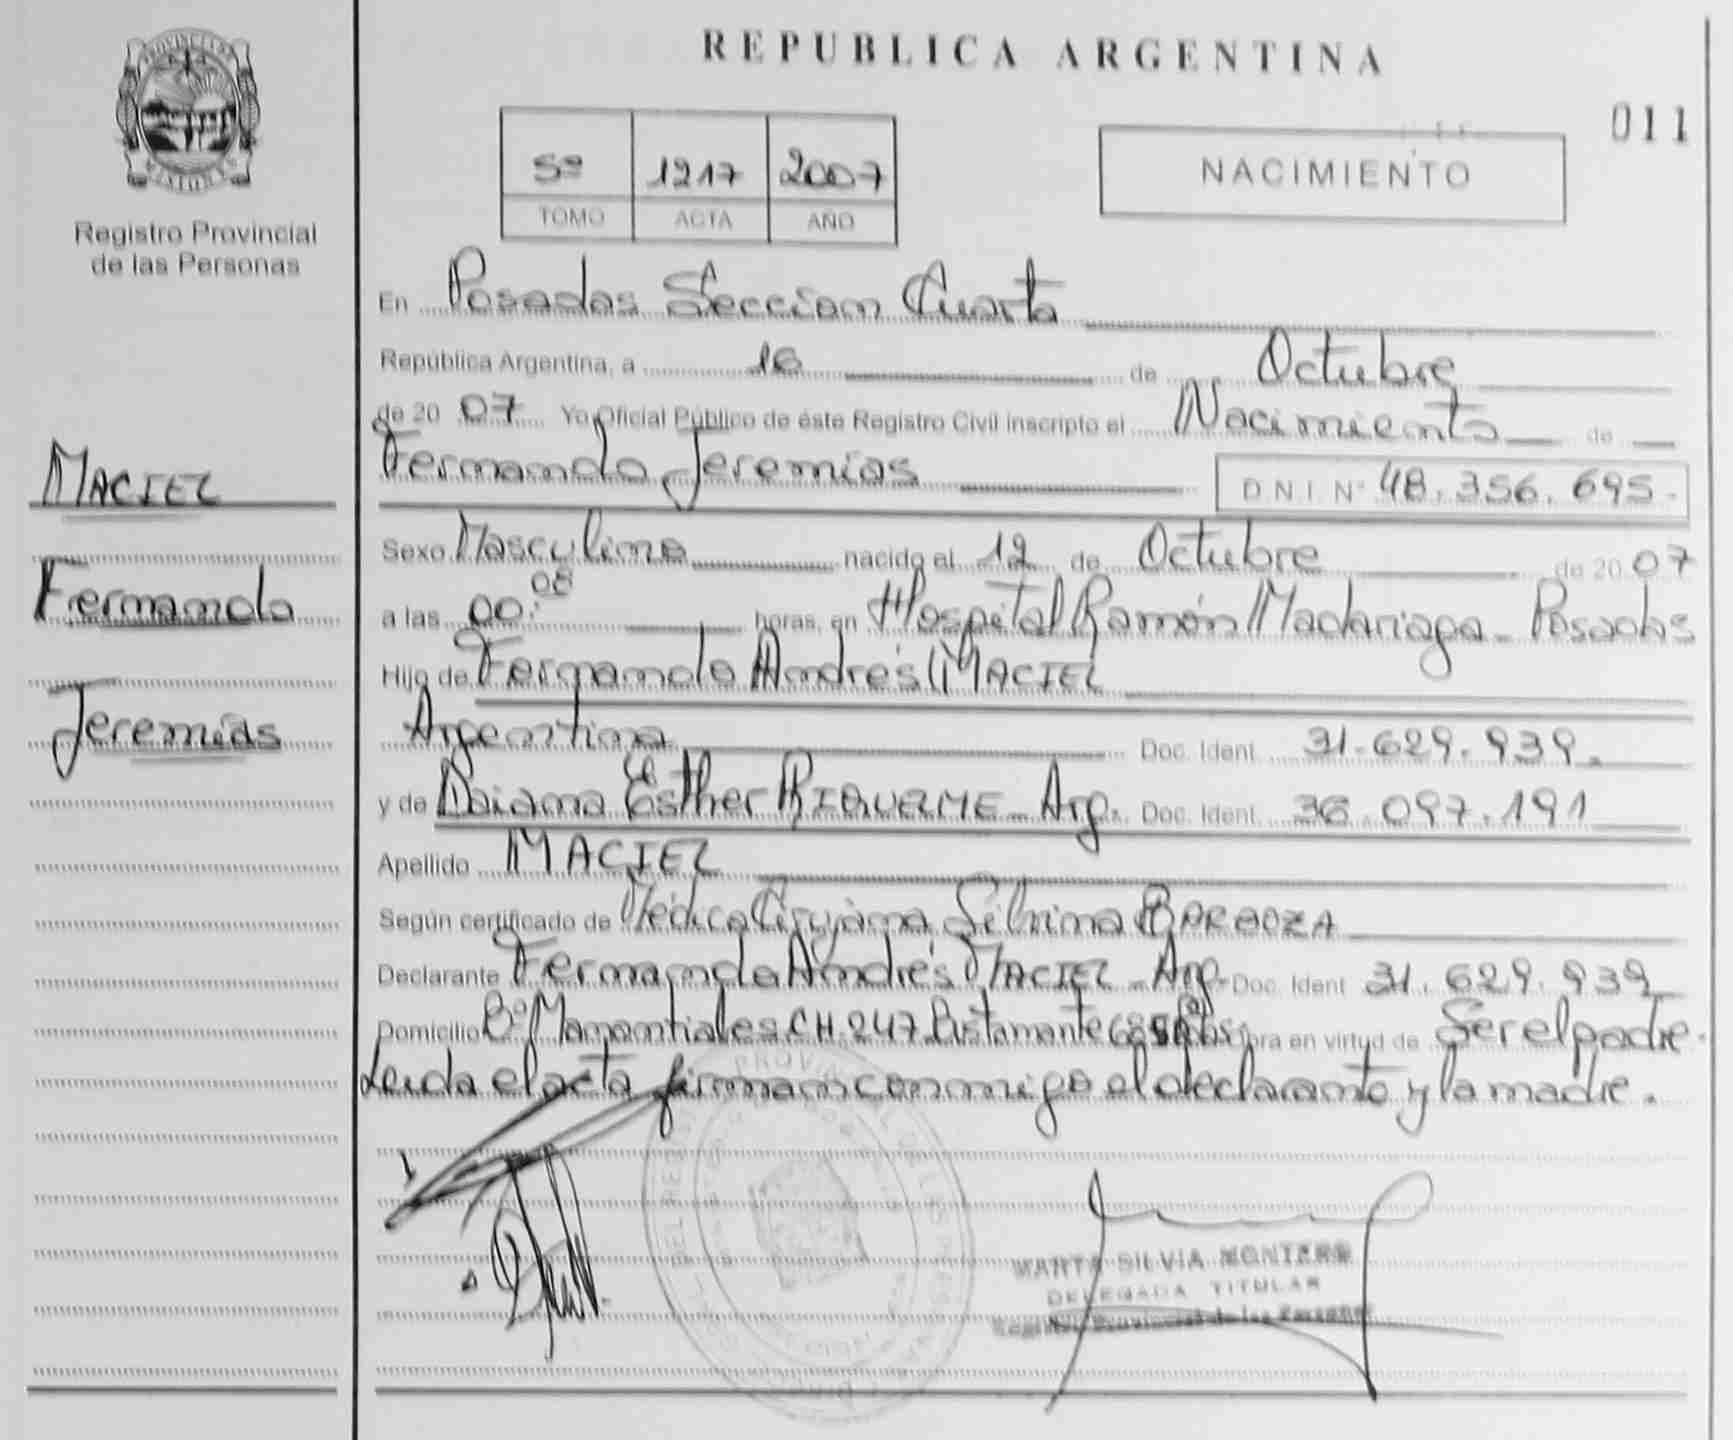 Registro Provincial
de las Personas
MACIEL
Fernando
Jeremías
REPUBLICA ARGENTINA
011
5º 1217 2007
TOMO ACTA AÑO
NACIMIENTO
En Posadas Sección Cuarta
República Argentina, a 16 de Octubre
de 20 07 Yo Oficial Público de éste Registro Civil inscripto el Nacimiento de
Fernando Jeremías D.N.I. Nº 48.356.695.
Sexo Masculino nacido el 12 de Octubre de 20 07
a las 00:08 horas, en Hospital Ramón Madariaga - Posadas
Hijo de Fernando Andrés MACIEL
Argentina Doc. Ident. 31.629.939.
y de Daiana Esther RIQUELME - Arg. Doc. Ident. 36.097.191
Apellido MACIEL
Según certificado de Médica Cirujana Silvina BARBOZA
Declarante Fernando Andrés MACIEL - Arg. Doc. Ident 31.629.939
Domicilio Bº Manantiales CH. 247 Bustamante obra en virtud de Ser el padre.
Leída el acta firman conmigo el declarante y la madre.
MARTA SILVIA MONTERO
DELEGADA TITULAR
Registro Provincial de las Personas